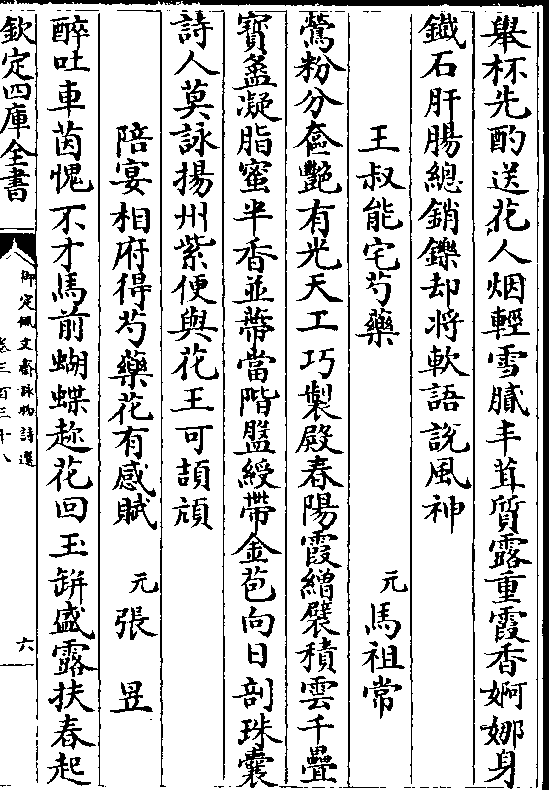 舉杯先酌送花人烟輕雪膩丰茸質露重霞香婀娜身
鐵石肝腸總銷鑠却將軟語說風神
王叔能宅芍藥　元馬祖常
鶯粉分奩艷有光天工巧製殿春陽霞繒襞積雲千疊
寶盝凝脂蜜半香並蒂當階盤綬帶金苞向日剖珠囊
詩人莫詠揚州紫便與花王可頡頏
陪宴相府得芍藥花有感賦　元張昱
醉吐車茵愧不才馬前蝴蝶趂花回玉缾盛露扶春起
欽定四庫全書
御定佩文齋詠物詩選
卷三百三十八
六